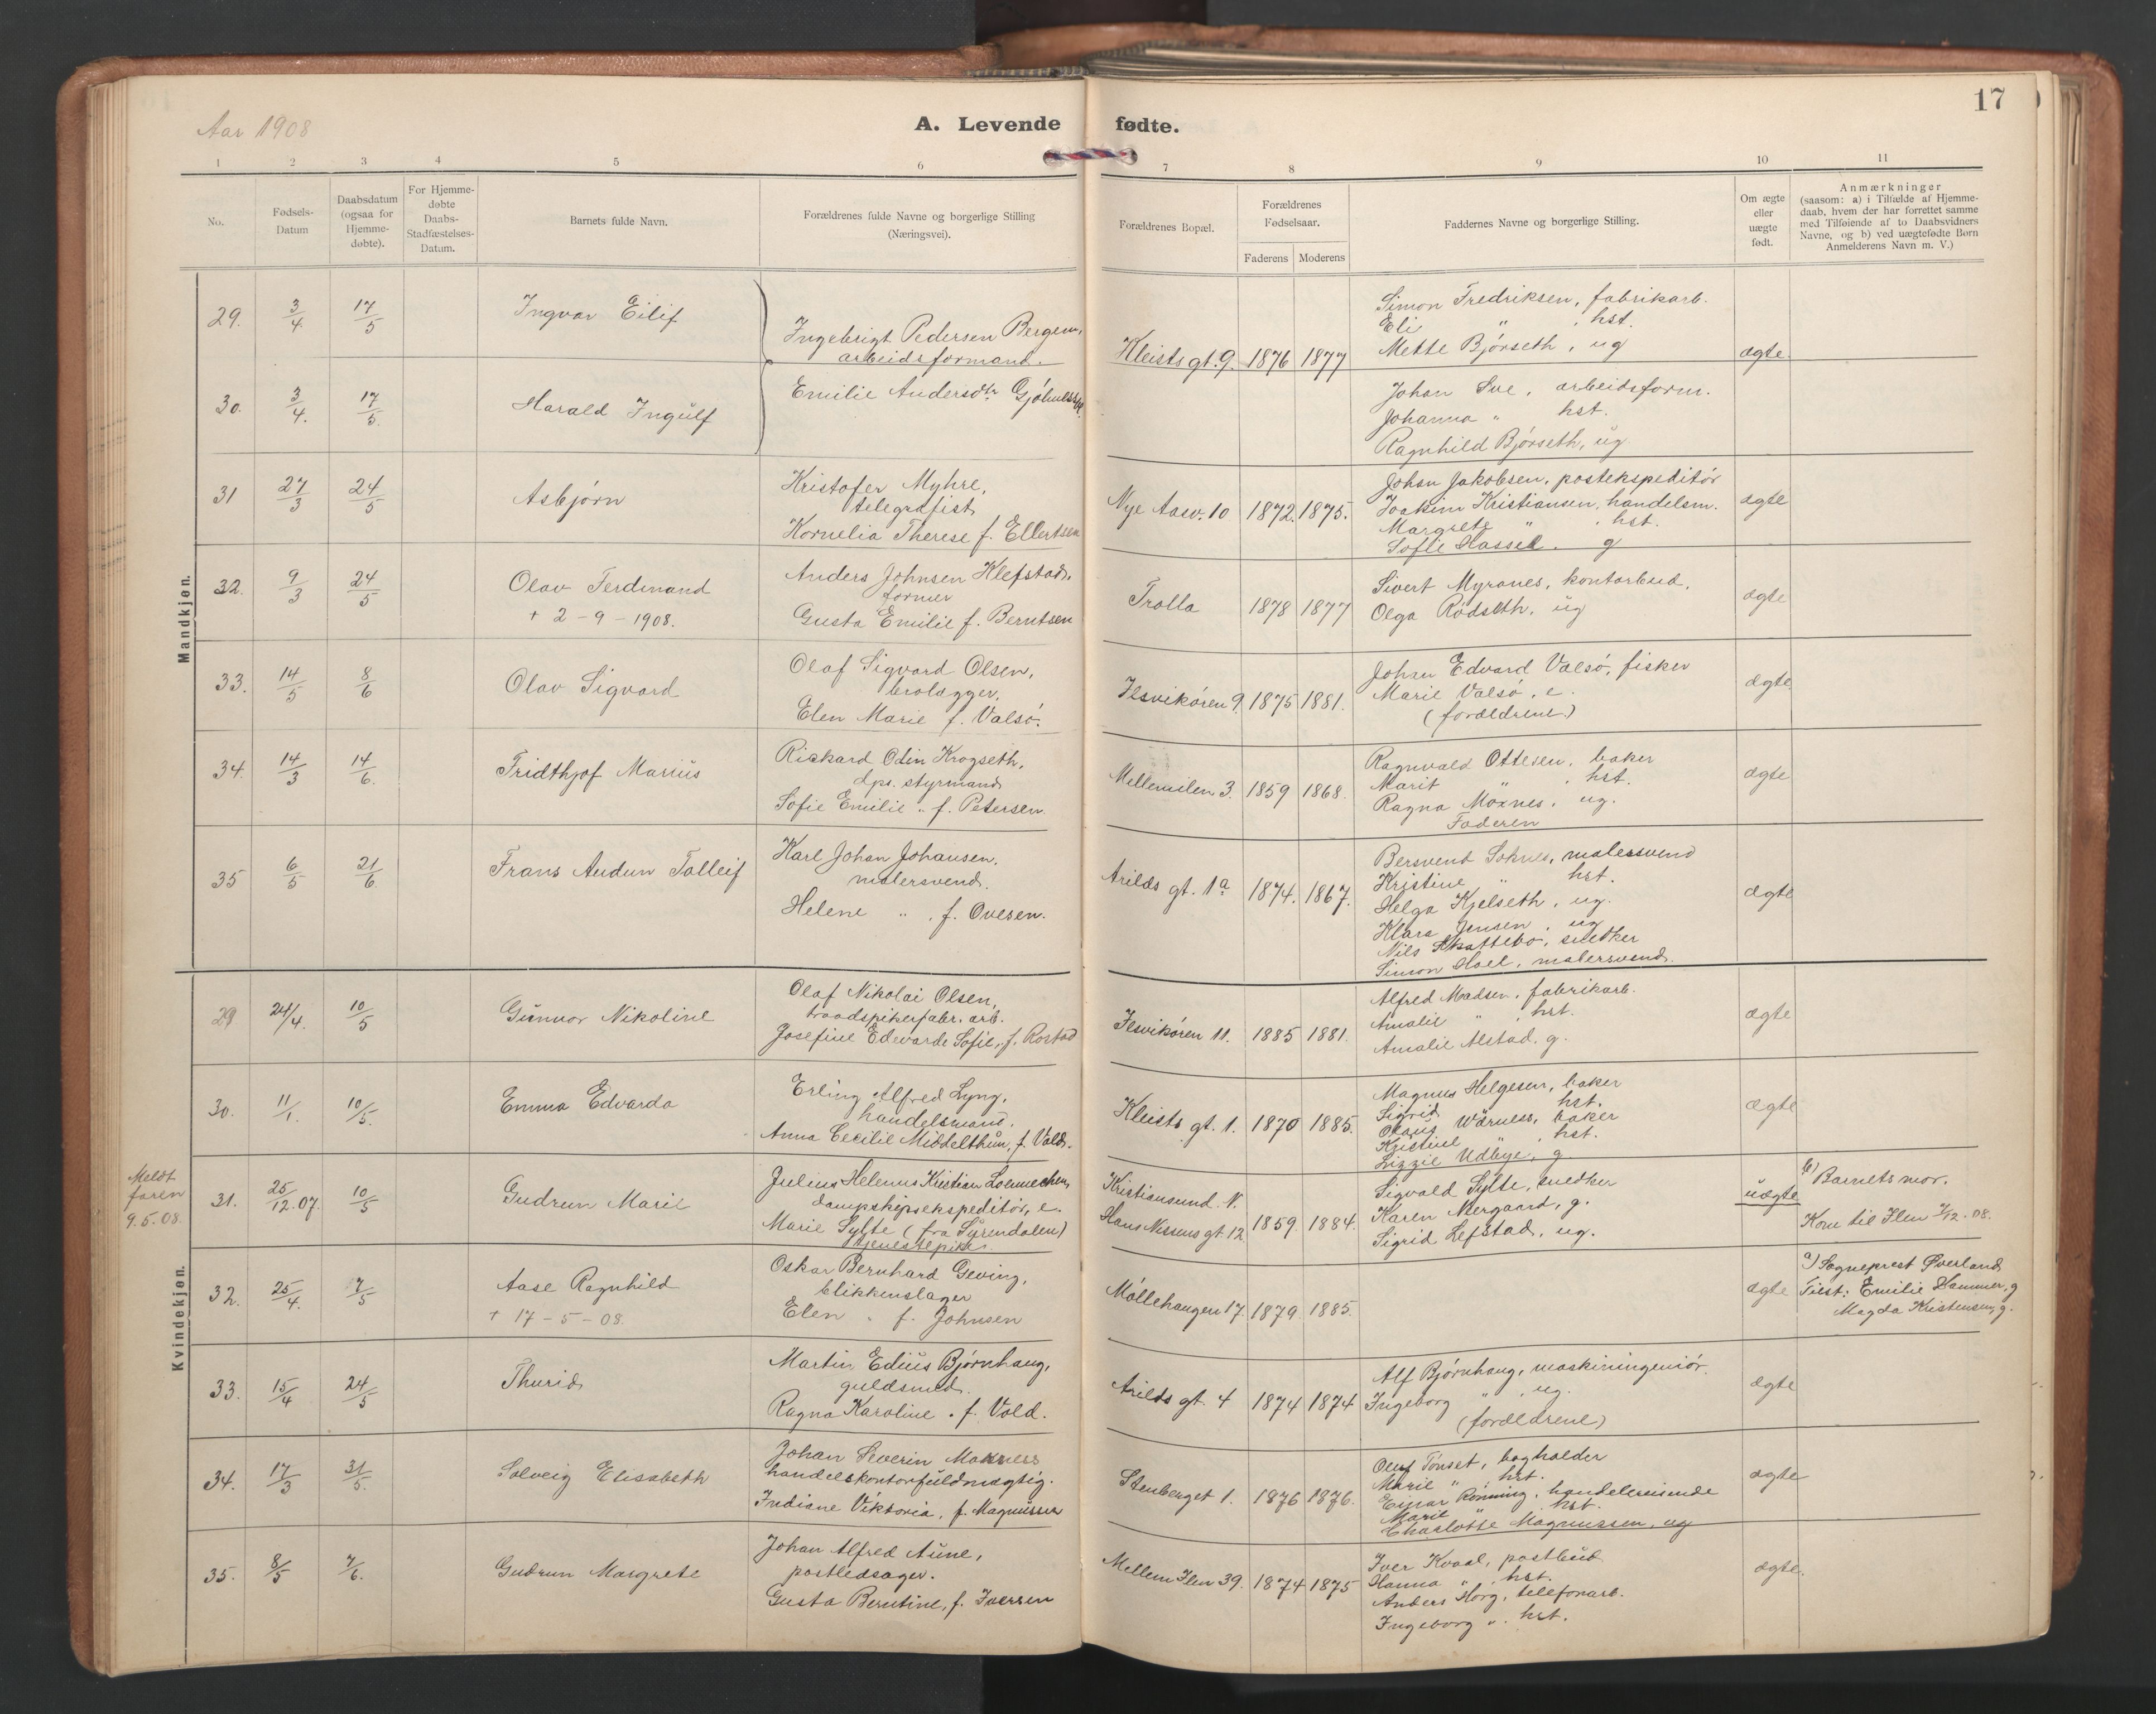 17
Aar 1908
A. Levende fødte.
1 2 3 4 5 6 7 8 9 10 11
No.
Fødsels-
Datum
Daabsdatum
(ogsaa for
Hjemme-
døbte).
For Hjemme-
døbte
Daabs-
Stadfæstelses-
Datum.
Barnets fulde Navn.
Forældrenes fulde Navne og borgerlige Stilling
(Næringsvei).
Forældrenes Bopæl.
Forældrenes
Fødselsaar.
Faderens Moderens
Faddernes Navne og borgerlige Stilling.
Om ægte
eller
uægte
født.
Anmærkninger
(saasom: a) i Tilfælde af Hjemme-
daab, hvem der har forrettet samme
med Tilføiende af to Daabsvidners
Navne, og b) ved uægtefødte Børn
Anmelderens Navn m. V.)
Mandkjøn.
29. 3/4 17/5 Ingvar Eilif
Ingebrigt Pedersen Bergem,
arbeidsformand.
Kleists gt. 9. 1876 1877
Simon Fredriksen, fabrikarb.
Eli " , hst.
Mette Bjørseth, ug
ægte
30. 3/4. 17/5. Harald Ingulf
Emilie Andersdtr
Johan Sve, arbeidsform.
Johanna " hst.
Ragnhild Bjørseth, ug
31 27/3 24/5 Asbjørn
Kristofer Myhre,
telegrafist
Kornelia Therese f. Ellertsen
Nye Aasv. 10 1872. 1875.
Johan Jakobsen, postekspeditør
Joakim Kristiansen, handelsm.
Margrete " , hst.
Sofie Hassel. g
ægte
32. 9/3 24/5 Olav Ferdinand
+ 2-9-1908.
Anders Johnsen Klefstad,
former
Gusta Emilie f. Berntsen
Trolla 1878 1877
Sivert Myranes, kontorbud.
Olga Rødseth, ug
ægte
33. 14/5 8/6 Olav Sigvard
Olaf Sigvard Olsen,
brolægger,
Elen Marie f. Valsø.
Ilsvikøren 9. 1875 1881.
Johan Edvard Valsø, fisker
Marie Valsø, e.
(forældrene)
ægte
34. 14/3 14/6. Fridthjof Marius
Rickard Odin Krogseth,
dps. styrmand
Sofie Emilie " f. Petersen
Mellemilen 3. 1859 1868.
Ragnvald Ottesen, baker
Marit " , hst.
Ragna Moxnes, ug.
Faderen
ægte
35 6/5 21/6. Frans Audun Tolleif
Karl Johan Johansen,
malersvend.
Helene " , f. Ovesen.
Arilds gt. 1a 1874. 1867.
Bersvend Soknes, malersvend
Kristine " hst.
Helga Kjelseth, ug.
Klara Jensen, ug
Nils Skattebo, snedker
Simon Hoel, malersvend.
ægte
Kvindekjøn.
29 24/4. 10/5 Gunvor Nikoline
Olaf Nikolai Olsen,
traadspikerfabr. arb.
Josefine Edvarda Sofie, f. Rostad
Ilsvikøren 11. 1885 1881.
Alfred Madsen, fabrikarb.
Amalie " , hst.
Amalie Alstad, g.
ægte
30. 11/1. 10/5. Emma Edvarda
Erling Alfred Lyng,
handelsmand.
Anna Cecilie Middelthun, f. Vold.
Kleists gt. 1. 1870 1885.
Magnus Helgesen, baker
Sigrid hst.
Olaus Wærness, baker
Kristine , hst.
Lizzie Udbye, g.
ægte
Meldt
faren
9.5.08.
31. 25/12.07. 10/5 Gudrun Marie
Julius Helenus Kristian Loennechen,
dampskipsekspeditør, e.
Marie Sylte (fra Surendalen)
tjenestepike
Kristiansund N.
Hans Nissens gt. 12 1859. 1884.
Sigvald Sylte, snedker
Karen Mergaard, g.
Sigrid Lefstad, ug.
uægte
b) Barnets mor.
Kom til Ilen 2/12.08.
32. 25/4. 7/5 Aase Ragnhild
+ 17-5-08.
Oskar Bernhard Geving,
blikkenslager
Elen " f. Johnsen
Møllehaugen 17. 1879 1885.
ægte
a) Sogneprest Øverland
Test: Emilie Hammer, g
Magda Kristensen, g.
33. 15/4 24/5 Thurid
Martin Edius Bjørnhaug,
guldsmed.
Ragna Karoline . f. Vold.
Arilds gt. 4 1874 1874
Alf Bjørnhaug, maskiningeniør
Ingeborg " , ug.
(forældrene)
ægte
34. 17/3 31/5. Solveig Elisabeth
Johan Severin Moxness
handelskontorfuldmægtig.
Indiane Viktoria, f. Magnussen
Stenberget 1. 1876 1876.
Oluf Tønset, bogholder
Marie " , hst.
Einar Rønning, handelsreisende
Marie " hst.
Charlotte Magnussen, ug
ægte
35. 8/5 7/6. Gudrun Margrete
Johan Alfred Aune,
postledsager.
Gusta Berntine, f. Iversen
Mellem Ilen 39. 1874 1875
Iver Kvaal, postbud
Hanna " , hst.
Anders Horg, telefonarb.
Ingeborg " . hst.
ægte.